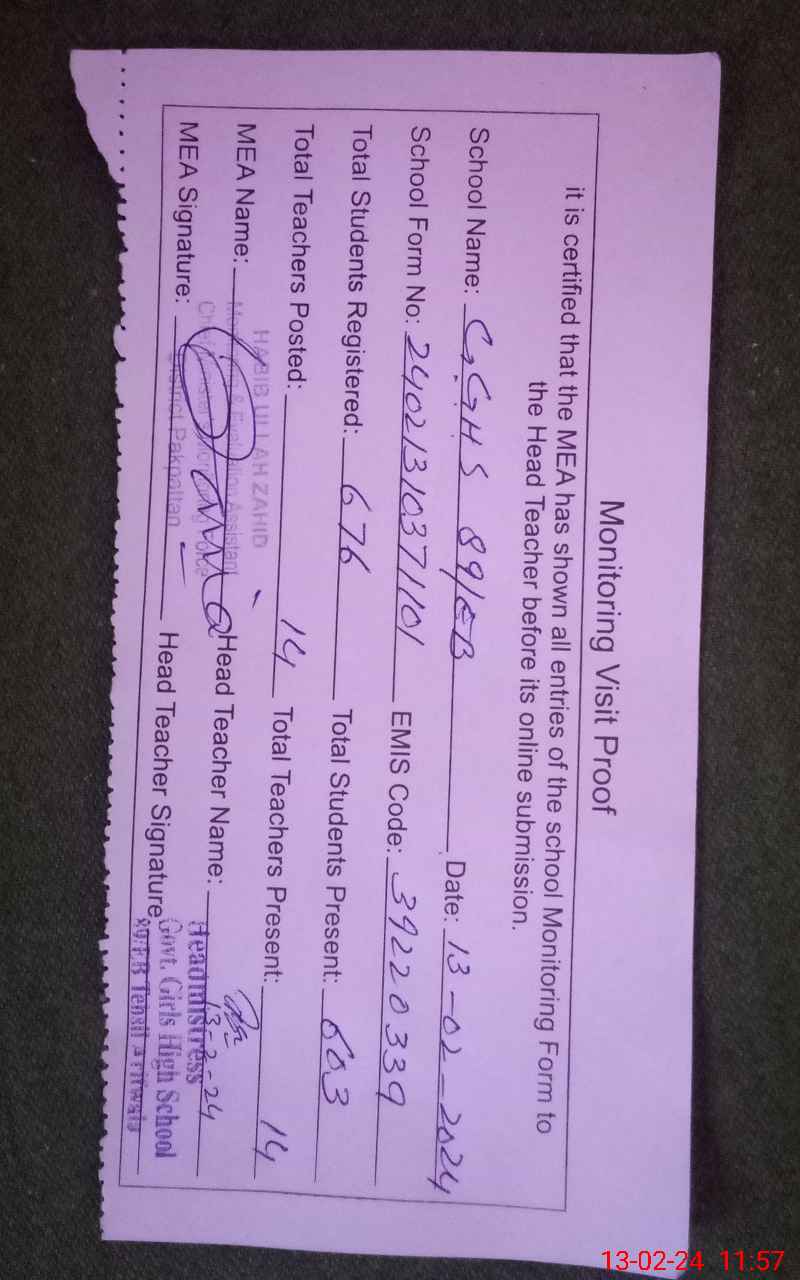 Monitoring Visit Proof
it is certified that the MEA has shown all entries of the school Monitoring Form to
the Head Teacher before its online submission.
School Name: GGHS 89/EB Date: 13-02-2024
School Form No: 24021310371101 EMIS Code: 39220339
Total Students Registered: 676 Total Students Present: 603
Total Teachers Posted: 14 Total Teachers Present: 14
MEA Name: HABIB ULLAH ZAHID Head Teacher Name:
Monitoring & Evaluation Assistant
District Pakpattan
MEA Signature: Head Teacher Signature
13-2-24
Headmistress
Govt. Girls High School
89/EB Tehsil Arifwala
13-02-24 11:57